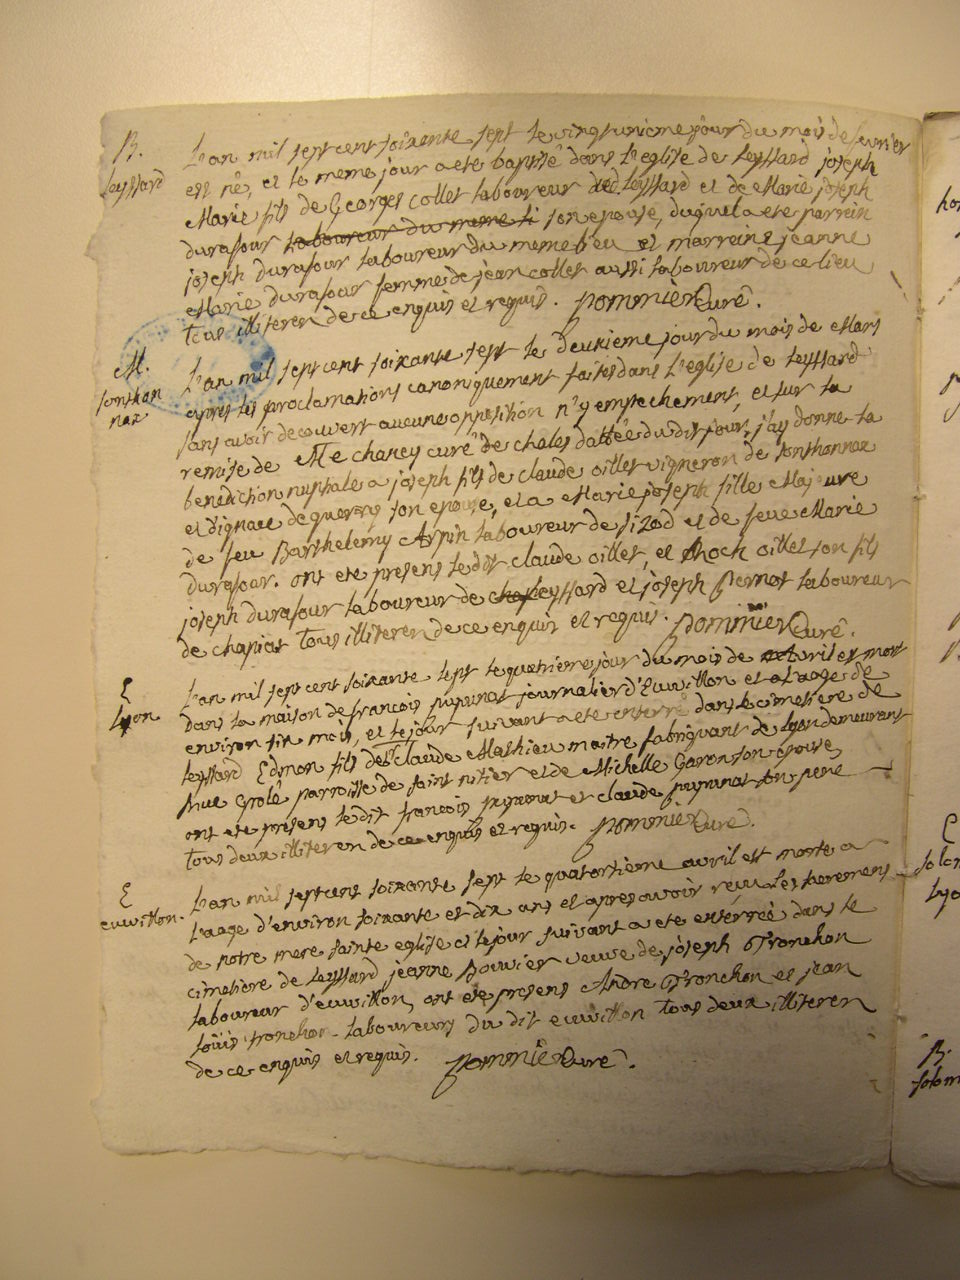 B.
Leyssard
L'an mil sept cent soixante sept le vingt unieme jour du mois de fevrier
est né, et le meme jour a eté baptisé dans l'eglise de Leyssard joseph
Marie fils de Georges collet laboureur de Leyssard et de Marie joseph
durafour laboureur du meme li son epouse, duquel a eté parrein
joseph durafour laboureur du meme lieu et marreine jeanne
Marie durafour femme de jean collet aussi laboureur de ce lieu
tous illiteren de ce enquis et requis. pommier Curé.
M.
sonthon
nax
L'an mil sept cent soixante sept le deuxieme jour du mois de Mars
apres les proclamations canoniquement faites dans l'eglise de Leyssard
sans avoir decouvert aucune opposition n'y empechement, et sur la
remise de Me charey curé de chales dattée du dit jour, j'ay donné la
benediction nuptiale a joseph fils de claude oillet vigneron de sonthonnax
et dignace de son epouse, et a Marie joseph fille Majeure
de feu Barthelemy Arpin laboureur de sizod et de feue Marie
durafour. ont eté presens le dit claude oillet, et Roch oillet son fils
joseph durafour laboureur de Leyssard et joseph Bernot laboureur
de chapiat tous illiteren de ce enquis et requis. pommier Curé.
E
Lyon
L'an mil sept cent soixante sept le quatrieme jour du mois de Avril est mort
dans la maison de francois puginat journalier d'Euvillon et a l'aage de
environ six mois, et le jour suivant a eté enterré dans le cimetiere de
Leyssard Edmon fils de Claude Mathieu maitre fabriquant de Lyon demeurant
Rue Grolé parroisse de saint nitier et de Michelle Garon son epouse
ont eté presens le dit francois puginat et claude puginat son pere
tous deux illiteren de ce enquis et requis. pommier Curé.
E
euvillon.
L'an mil sept cent soixante sept le quatortieme avril est morte a
l'aage d'environ soixante et dix ans et apres avoir reçu les sacremens
de notre mere sainte eglise et le jour suivant a eté enterréé dans le
cimetiere de Leyssard jeanne Bouvier veuve de joseph Tronchon
laboureur d'euvillon, ont eté presens Andre Tronchon et jean
loüis tronchon laboureurs du dit euvillon tous deux illiteren
de ce enquis et requis. pommier Curé.